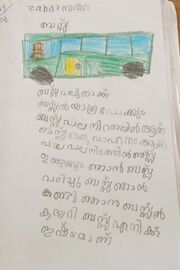 ബസ്സ്
ബസ്സ് വലുതാണ്
ബസ്സിൽ യാത്ര പോകും
ബസ്സ് പല നിറത്തിൽ ഉണ്ട്
ബസ്സ് ഒരു വാഹനം ആണ്
പല പല നിറത്തിൽ ബസ്സ്
ഉണ്ടാകും ഞാൻ ബസ്സ്
ബസ്സ് ഞാൻ
കണ്ടു ഞാൻ ബസ്സിൽ
കയറി ബസ്സ് എനിക്ക്
ഇഷ്ടമാണ്